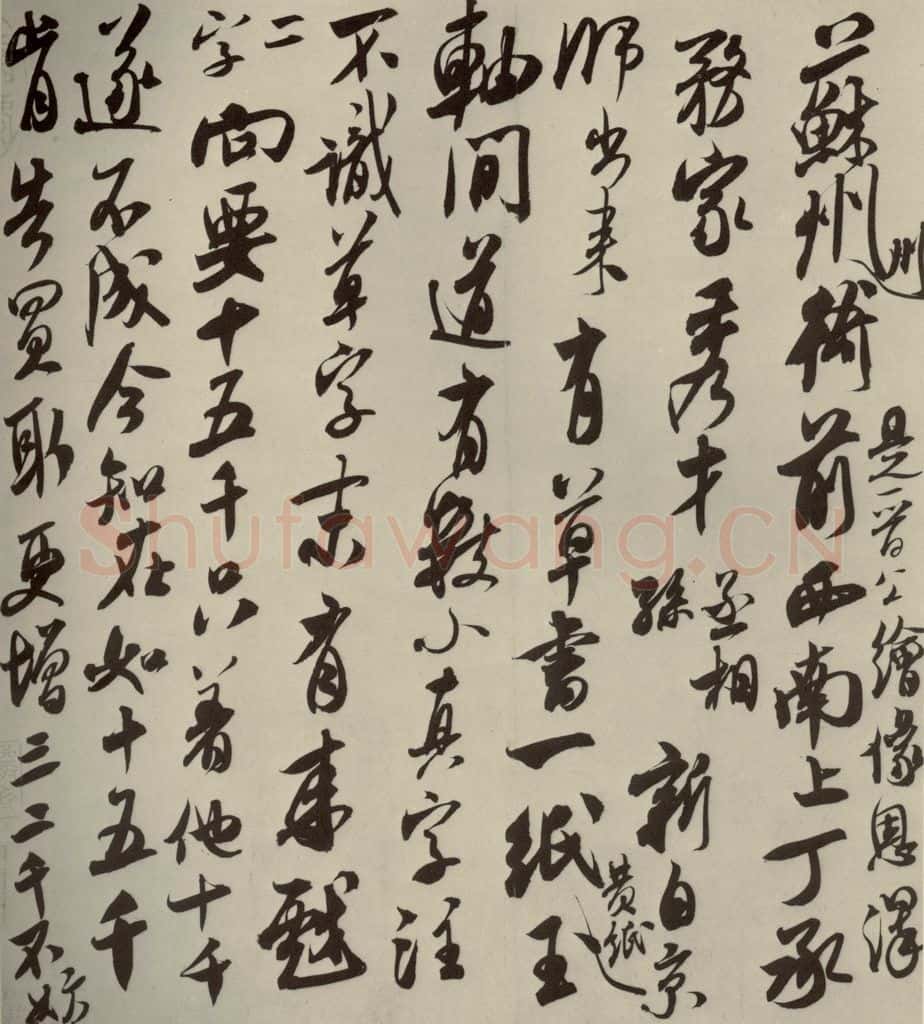 州
是晉公繪像恩澤
蘇州衙前西南上丁承
務家秀才丞相孫新自京
師出來有草書一紙黄紙玉
軸間道有數小真字注
不識草字末有來戲
二字向要十五千只著他十千
遂不成今知在如十五千
肯告買取更增三二千不妨
Shufawang.CN